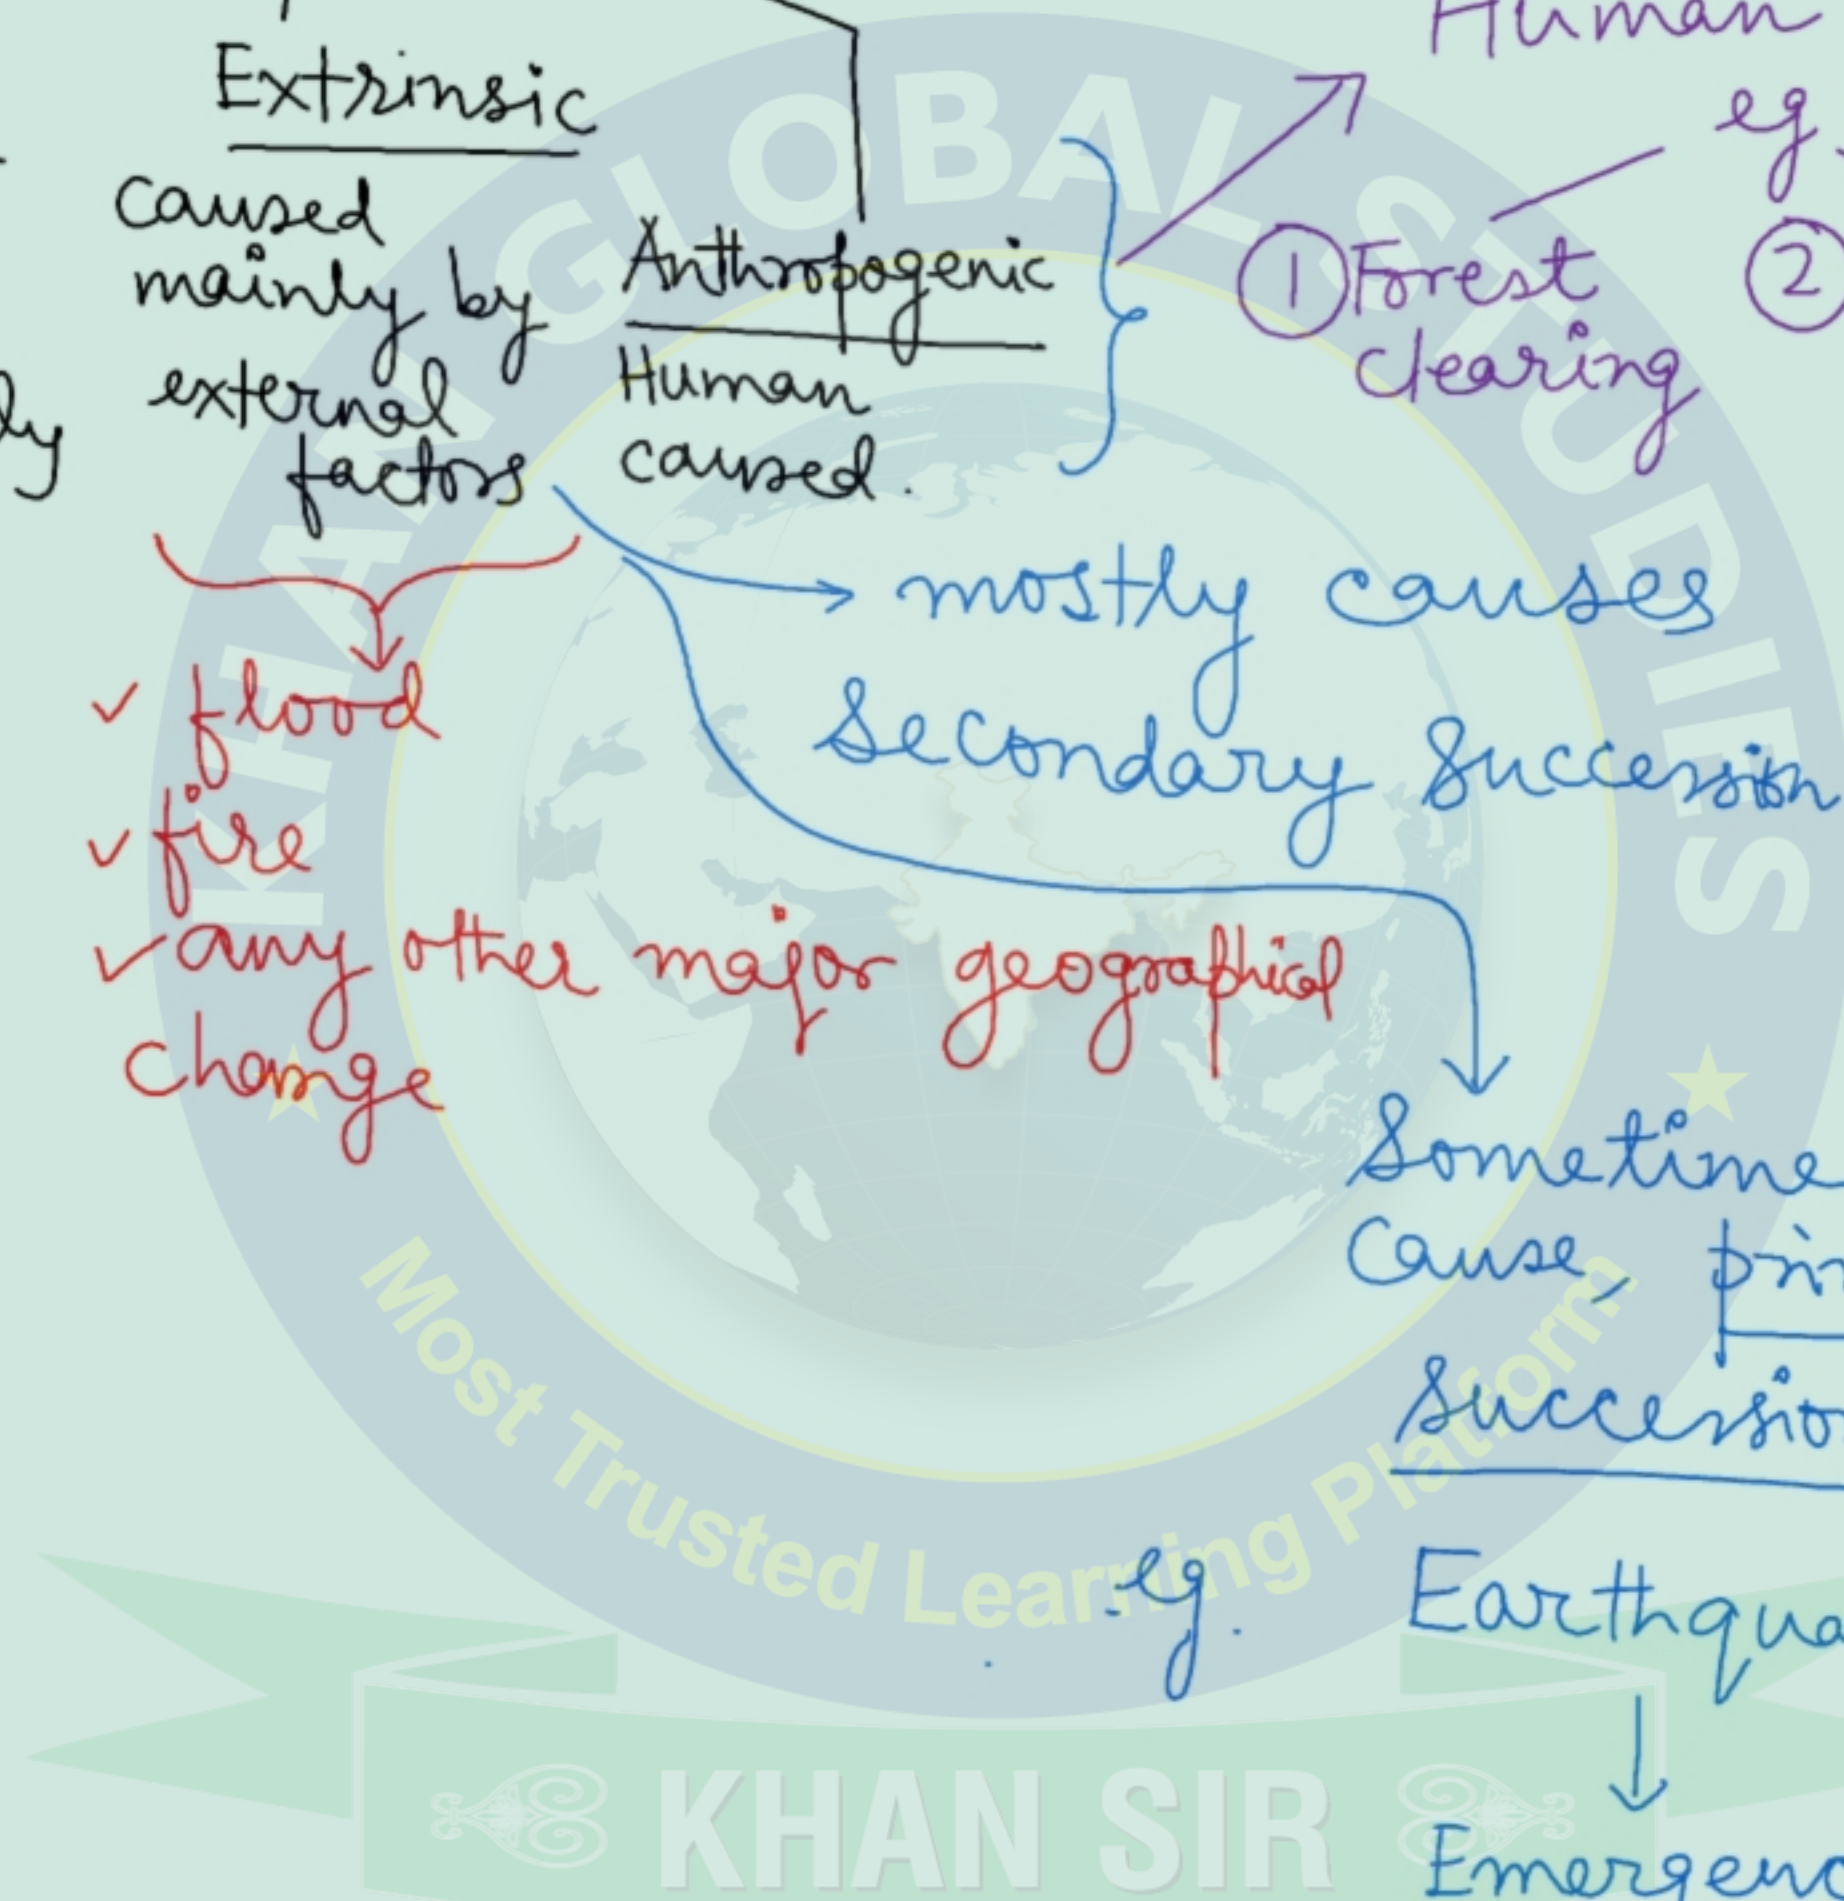 Human
Extrinsic
eg.
Caused
mainly by
external
factors
Anthropogenic
Human
caused.
① Forest
clearing
②
ly
mostly causes
Secondary Succession
✓ flood
✓ fire
✓ any other major geographical
change
Sometime
Cause,
Successio
eg.
Earthqua
Emergenc
KHAN GLOBAL STUDIES
Most Trusted Learning Platform
KHAN SIR